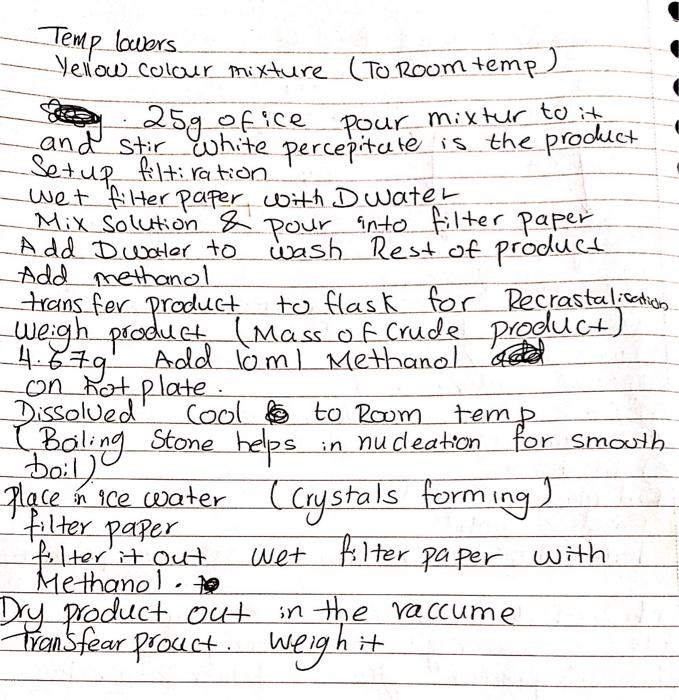 Temp lowers
Yellow colour mixture (To Room temp)
. 25g of ice pour mixtur to it
and stir white percepitate is the product
Setup filtiration
wet filter paper with D water
Mix Solution & pour into filter paper
Add D water to wash Rest of product
Add methanol
transfer product to flask for Recrastalisation
weigh product (Mass of Crude product)
4.67g Add 10ml Methanol
on hot plate.
Dissolved Cool to Room temp
(Boling Stone helps in nucleation for smouth
boil)
Place in ice water (Crystals forming)
filter paper
filter it out wet filter paper with
Methanol.
Dry product out in the vaccume
Transfear prouct. weigh it